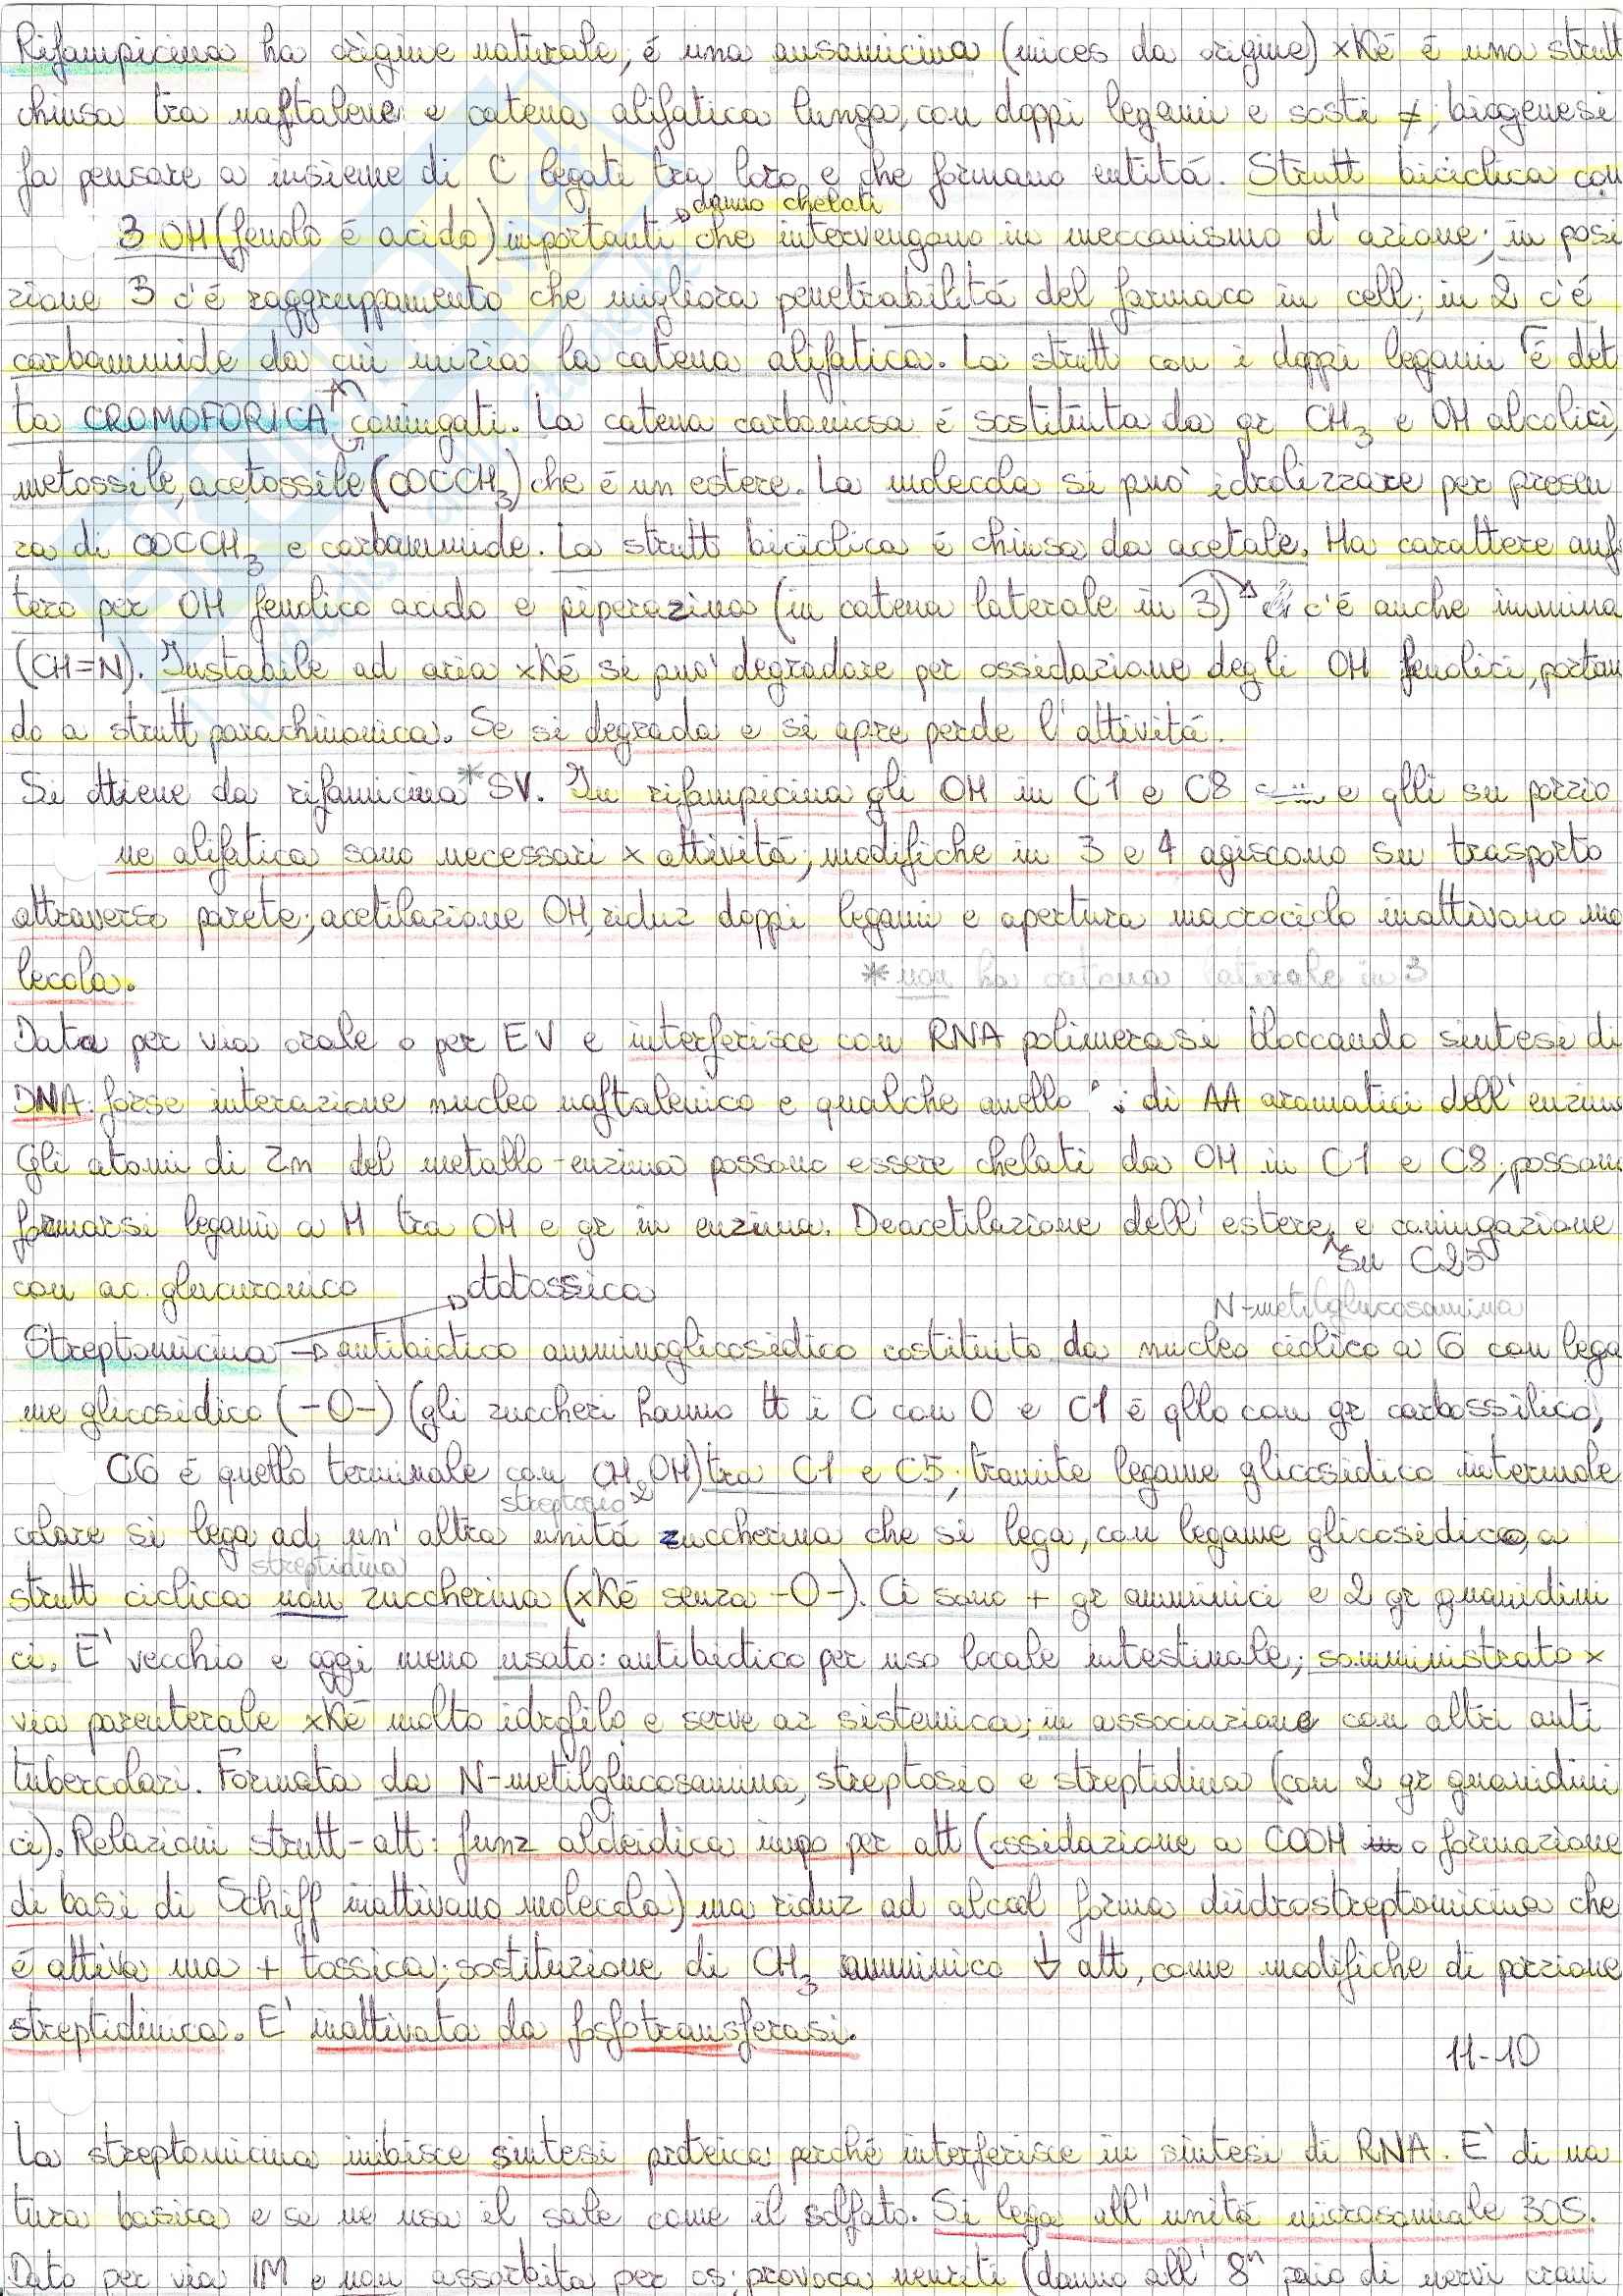 Rifampicina ha origine naturale, é una ansamicina (mices da origine) xKé é una strutt
chiusa tra naftalene e catena alifatica lunga, con doppi legami e sosti ≠; biogenesi
fa pensare a insieme di C legati tra loro e che formano entitá. Strutt biciclica con
danno chelati
3 OH (fenolo é acido) importanti che intervengono in meccanismo d'azione; in posi
zione 3 c'é raggruppamento che migliora penetrabilitá del farmaco in cell; in 2 c'é
carbammide da cui inizia la catena alifatica. La strutt con i doppi legami é det
ta CROMOFORICA coniugati. La catena carboniosa é sostituita da gr CH3 e OH alcolici,
metossile, acetossile (OCOCH3) che é un estere. La molecola si puó idrolizzare per presen
za di OCOCH3 e carbammide. La strutt biciclica é chiusa da acetale. Ha carattere anfo
tero per OH fenolico acido e piperazina (in catena laterale in 3) c'é anche immina
(CH=N). Instabile ad aria xKé si puó degradare per ossidazione degli OH fenolici, portan
do a strutt parachinonica. Se si degrada e si apre perde l'attivitá.
Si ottiene da rifamicina* SV. In rifampicina gli OH in C1 e C8 e qlli su porzio
ne alifatica sono necessari x attivitá; modifiche in 3 e 4 agiscono su trasporto
attraverso parete; acetilazione OH, riduz doppi legami e apertura macrociclo inattivano mo
lecola.
* non ha catena laterale in 3
Data per via orale o per EV e interferisce con RNA polimerasi bloccando sintesi di
DNA: forse interazione nucleo naftalenico e qualche anello di AA aromatici dell'enzima
Gli atomi di Zn del metallo-enzima possono essere chelati da OH in C1 e C8; possono
formarsi legami a H tra OH e gr in enzima. Deacetilazione dell'estere e coniugazione
su C25
con ac. glucuronico ototossica
N-metilglucosamina
Streptomicina → antibiotico amminoglicosidico costituito da nucleo ciclico a 6 con lega
me glicosidico (-O-) (gli zuccheri hanno tt i C con O e C1 é qllo con gr carbossilico,
C6 é quello terminale con CH2OH) tra C1 e C5; tramite legame glicosidico intermole
streptosio
colare si lega ad un'altra unitá zuccherina che si lega, con legame glicosidico, a
streptidina
strutt ciclica non zuccherina (xKé senza -O-). Ci sono + gr amminici e 2 gr guanidini
ci. E' vecchio e oggi meno usato: antibiotico per uso locale intestinale; somministrato x
via parenterale xKé molto idrofilo e serve az sistemica; in associazione con altri anti
tubercolari. Formata da N-metilglucosamina, streptosio e streptidina (con 2 gr guanidini
ci). Relazioni strutt-att: funz aldeidica impo per att (ossidazione a COOH o formazione
di basi di Schiff inattivano molecola) ma riduz ad alcol forma diidrostreptomicina che
é attiva ma + tossica; sostituzione di CH3 amminico ↓ att, come modifiche di porzione
streptidinica. E' inattivata da fosfotransferasi.
11-10
La streptomicina inibisce sintesi proteica perché interferisce in sintesi di RNA. E' di na
tura basica e se ne usa il sale come il solfato. Si lega all'unitá microsomale 30S.
Dato per via IM e non assorbita per os; provoca neuriti (danno all'8° paio di nervi crani